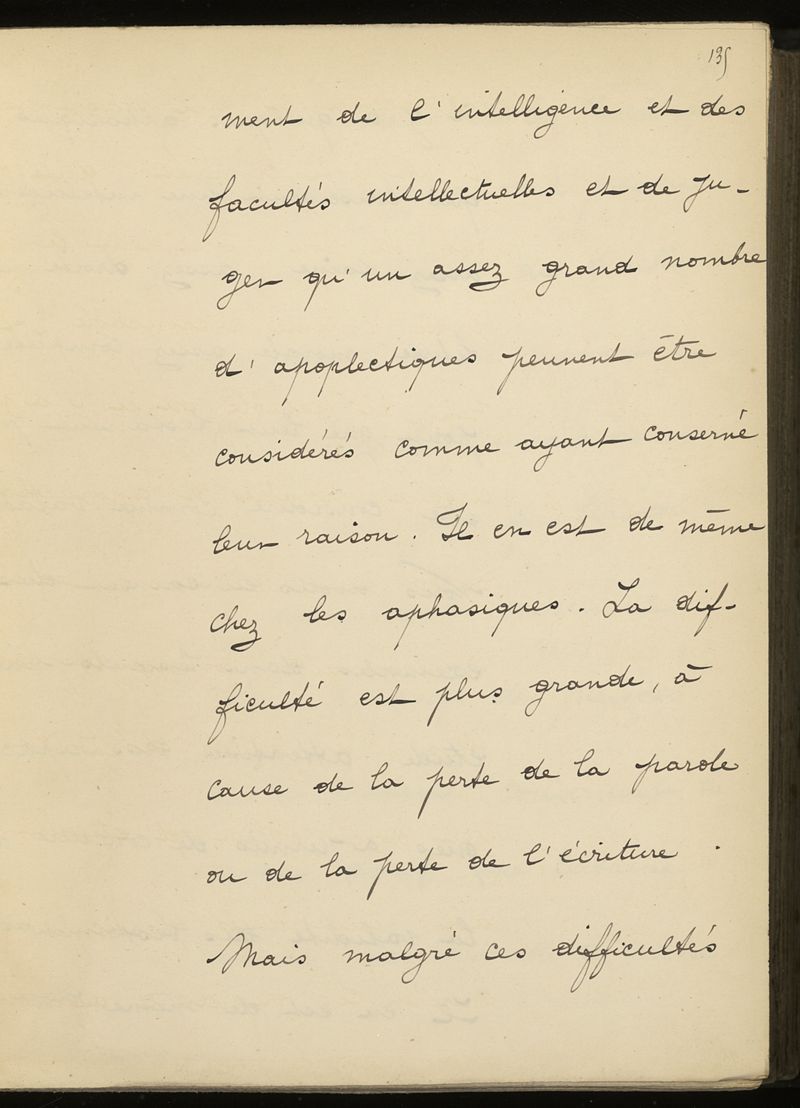 135
ment de l'intelligence et des
facultés intellectuelles et de ju-
ger qu'un assez grand nombre
d'apoplectiques peuvent être
considérés comme ayant conservé
leur raison. Il en est de même
chez les aphasiques. La dif-
ficulté est plus grande, à
cause de la perte de la parole
ou de la perte de l'écriture.
Mais malgré ces difficultés